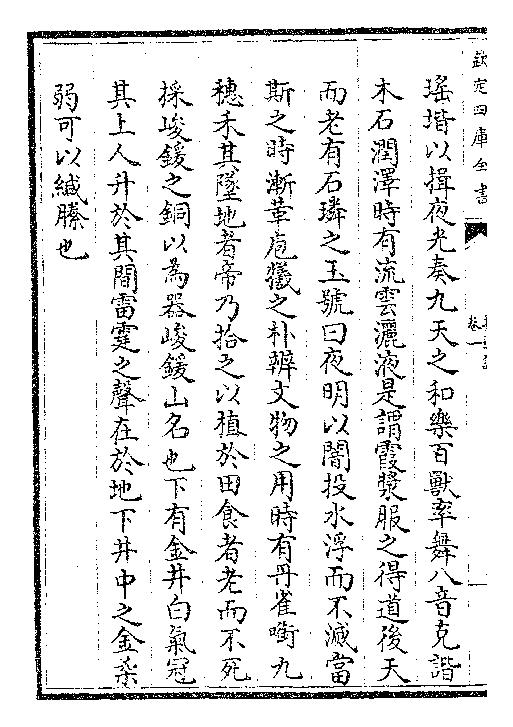 欽定四庫全書
卷一
瑤堦以揖夜光奏九天之和樂百獸率舞八音克諧
木石潤澤時有流雲灑液是謂霞漿服之得道後天
而老有石璘之玉號曰夜明以闇投水浮而不滅當
斯之時漸革庖犧之朴辨文物之用時有丹雀啣九
穗禾其墜地者帝乃拾之以植於田食者老而不死
採峻鍰之銅以為器峻鍰山名也下有金井白氣冠
其上人升於其間雷霆之聲在於地下井中之金柔
弱可以緘縢也